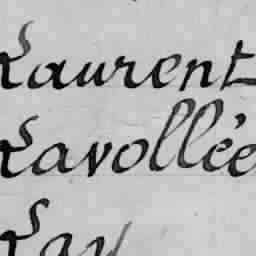 Laurent
Lavollée
Lay